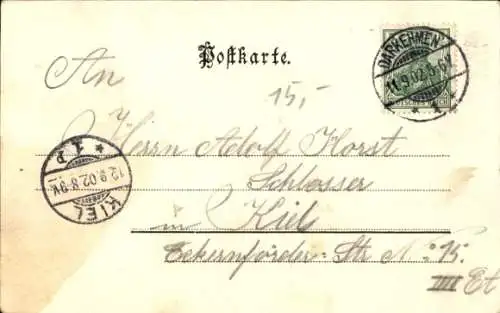 Postkarte.
DARKEHMEN
11.9.02.5-6N
DEUTSCHES REICH
An
15,-
Herrn Adolf Horst
Schlosser
in Kiel
Eckernförder-Str No: 15.
IIII Et
KIEL
12.9.02.8-9V.
* 1 P